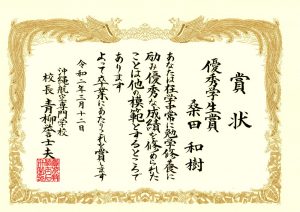 賞状
優秀学生賞
桑田和樹
あなたは在学中常に勉学修養に
励み優秀な成績を修められた
ことは他の模範とするところで
あります
よって卒業にあたりこれを賞します
令和二年三月十二日
沖縄航空専門学校
校長 青柳誉士夫